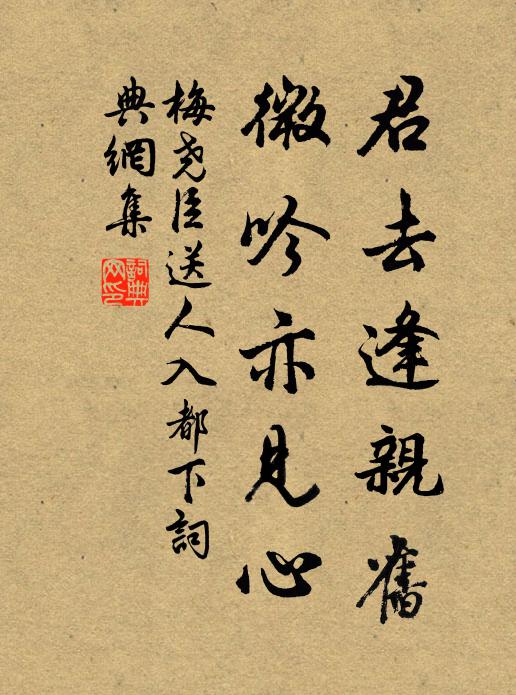 君去逢親舊
微吟亦見心
梅堯臣送人入都下詞
典網集
詞典
网印